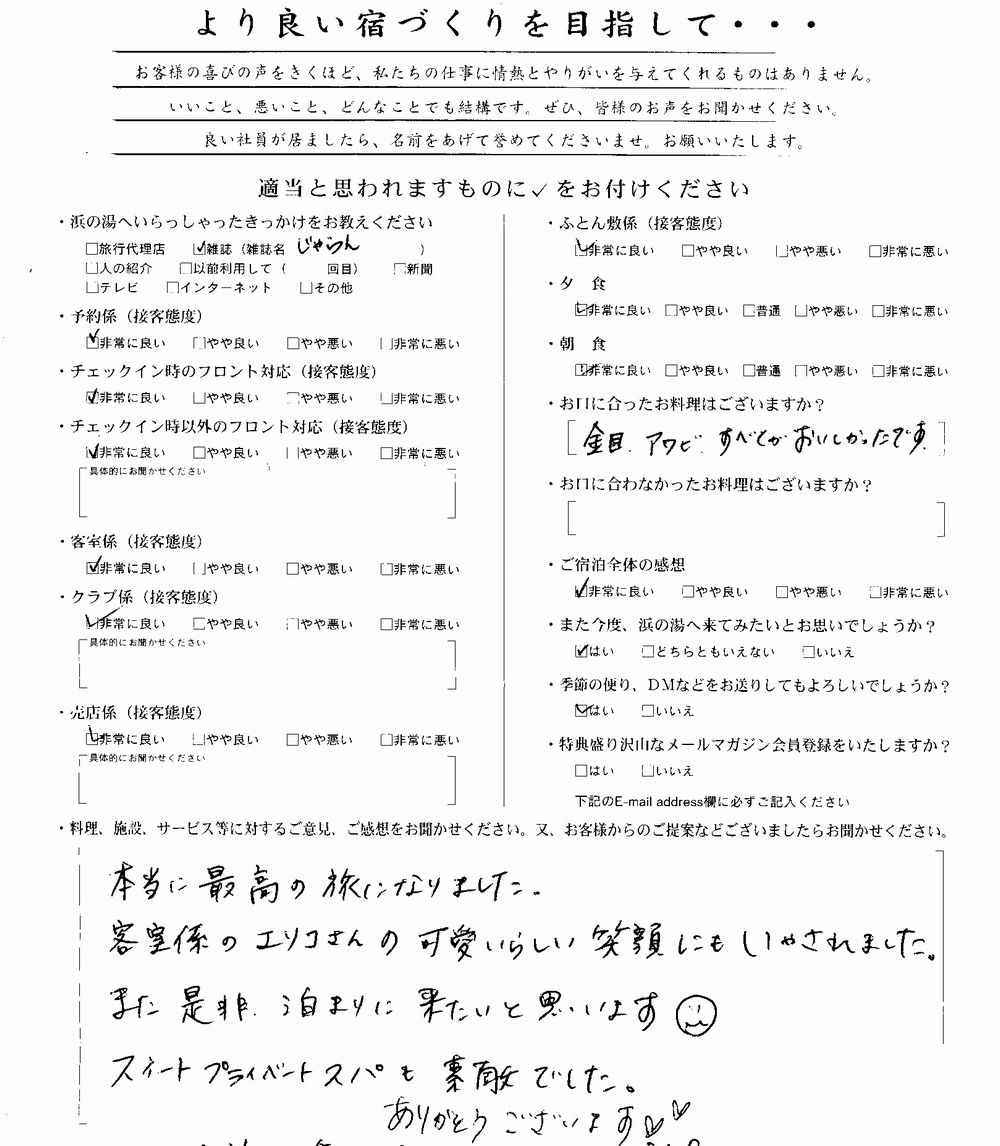 より良い宿づくりを目指して・・・
お客様の喜びの声をきくほど、私たちの仕事に情熱とやりがいを与えてくれるものはありません。
いいこと、悪いこと、どんなことでも結構です。ぜひ、皆様のお声をお聞かせください。
良い社員が居ましたら、名前をあげて誉めてくださいませ。お願いいたします。
適当と思われますものに✓をお付けください
・浜の湯へいらっしゃったきっかけをお教えください
□旅行代理店 ☑雑誌（雑誌名 じゃらん ）
□人の紹介 □以前利用して（ 回目） □新聞
□テレビ □インターネット □その他
・予約係（接客態度）
☑非常に良い □やや良い □やや悪い □非常に悪い
・チェックイン時のフロント対応（接客態度）
☑非常に良い □やや良い □やや悪い □非常に悪い
・チェックイン時以外のフロント対応（接客態度）
☑非常に良い □やや良い □やや悪い □非常に悪い
具体的にお聞かせください
・客室係（接客態度）
☑非常に良い □やや良い □やや悪い □非常に悪い
・クラブ係（接客態度）
☑非常に良い □やや良い □やや悪い □非常に悪い
具体的にお聞かせください
・売店係（接客態度）
☑非常に良い □やや良い □やや悪い □非常に悪い
具体的にお聞かせください
・ふとん敷係（接客態度）
☑非常に良い □やや良い □やや悪い □非常に悪い
・夕 食
☑非常に良い □やや良い □普通 □やや悪い □非常に悪い
・朝 食
☑非常に良い □やや良い □普通 □やや悪い □非常に悪い
・お口に合ったお料理はございますか？
金目、アワビ、すべてがおいしかったです。
・お口に合わなかったお料理はございますか？
・ご宿泊全体の感想
☑非常に良い □やや良い □やや悪い □非常に悪い
・また今度、浜の湯へ来てみたいとお思いでしょうか？
☑はい □どちらともいえない □いいえ
・季節の便り、DMなどをお送りしてもよろしいでしょうか？
☑はい □いいえ
・特典盛り沢山なメールマガジン会員登録をいたしますか？
□はい □いいえ
下記のE-mail address欄に必ずご記入ください
・料理、施設、サービス等に対するご意見、ご感想をお聞かせください。又、お客様からのご提案などございましたらお聞かせください。
本当に最高の旅になりました。
客室係のエリコさんの可愛いらしい笑顔にもいやされました。
また是非、泊まりに来たいと思います
スイートプライベートスパも素敵でした。
ありがとうございます♡♡